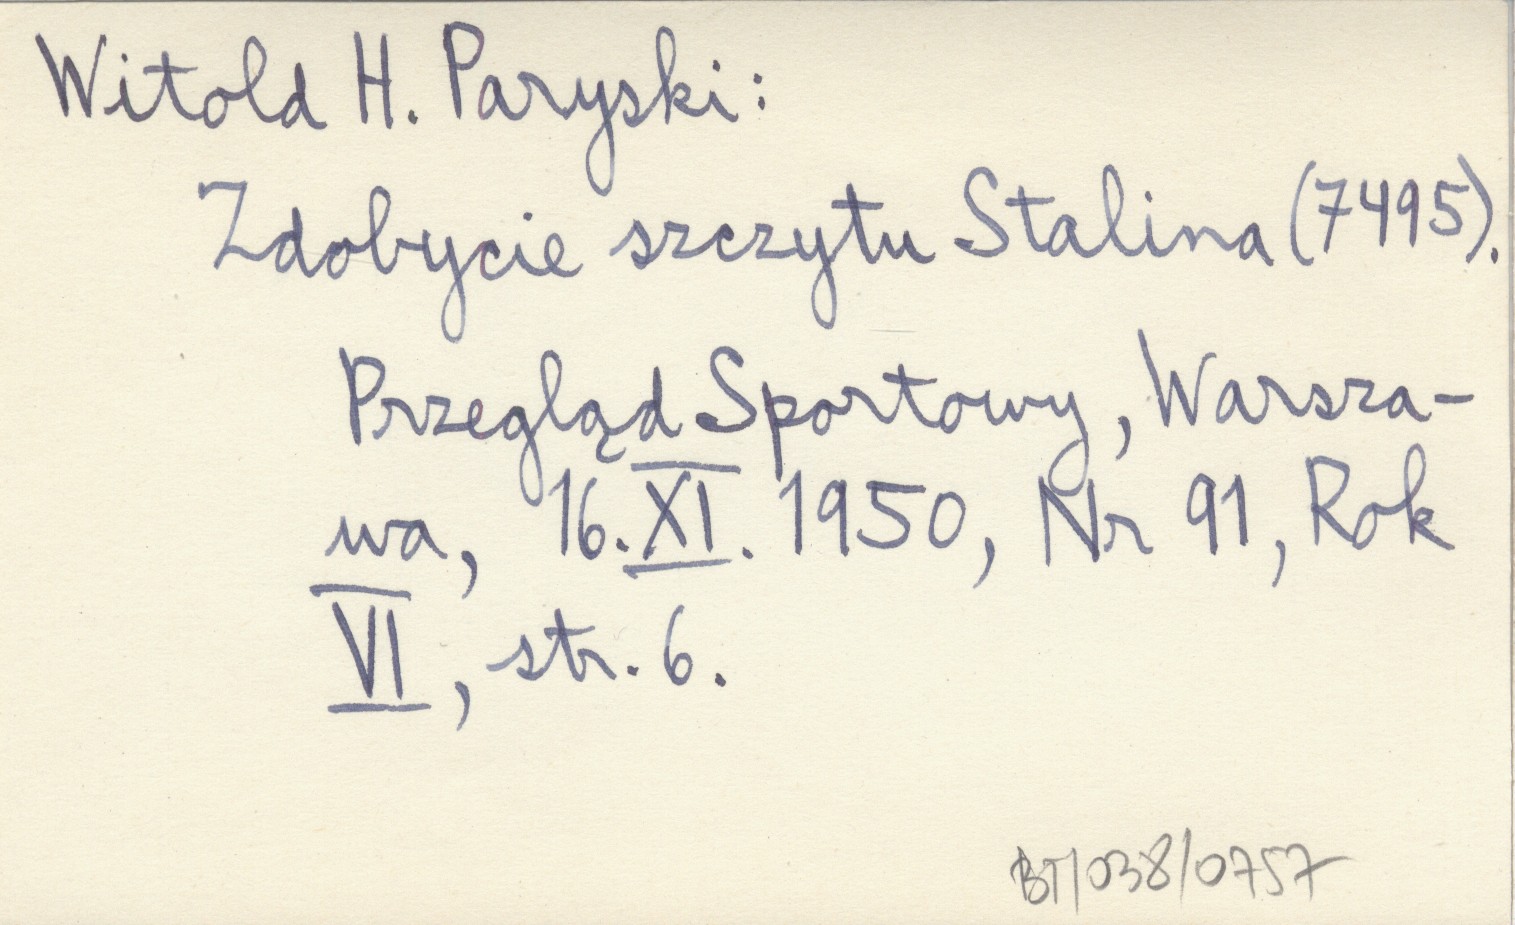 Witold H. Paryski:
Zdobycie szczytu Stalina (7495).
Przegląd Sportowy, Warsza-
wa, 16.XI.1950, Nr 91, Rok
VI, str. 6.
BT/038/0757